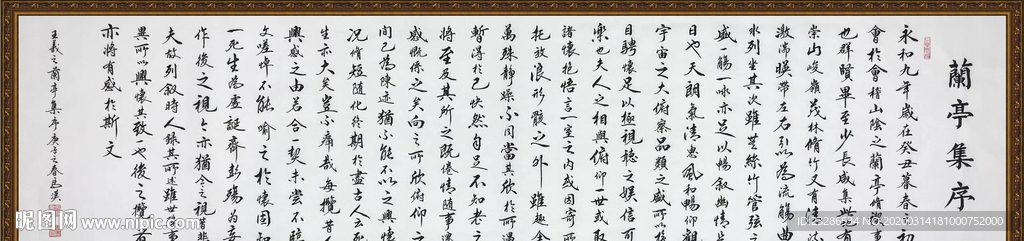 蘭亭集序
永和九年歲在癸丑暮春之初
會於會稽山陰之蘭亭脩禊事
也群賢畢至少長咸集此地有
崇山峻嶺茂林脩竹又有清流
激湍暎帶左右引以為流觴曲
水列坐其次雖無絲竹管弦之
盛一觴一詠亦足以暢敘幽情
日也天朗氣清惠風和暢仰觀
宇宙之大俯察品類之盛所以
目騁懷足以極視聽之娛信可
樂也夫人之相與俯仰一世或取
諸懷抱悟言一室之內或因寄所
托放浪形骸之外雖趣舍
萬殊靜躁不同當其欣於所遇
暫得於己快然自足不知老之
將至及其所之既倦情隨事遷
感慨係之矣向之所欣俯仰之
間已為陳迹猶不能不以之興懷
況脩短隨化終期於盡古人云死
生亦大矣豈不痛哉每攬昔人
興感之由若合一契未嘗不臨
文嗟悼不能喻之於懷固知
一死生為虛誕齊彭殤為妄
作後之視今亦猶今之視昔悲
夫故列敘時人錄其所述雖世殊事
異所以興懷其致一也後之攬者
亦將有感於斯文
王羲之蘭亭集序庚子之春
昵图网 www.nipic.com
ID:25286534 NO:20200314181000752000